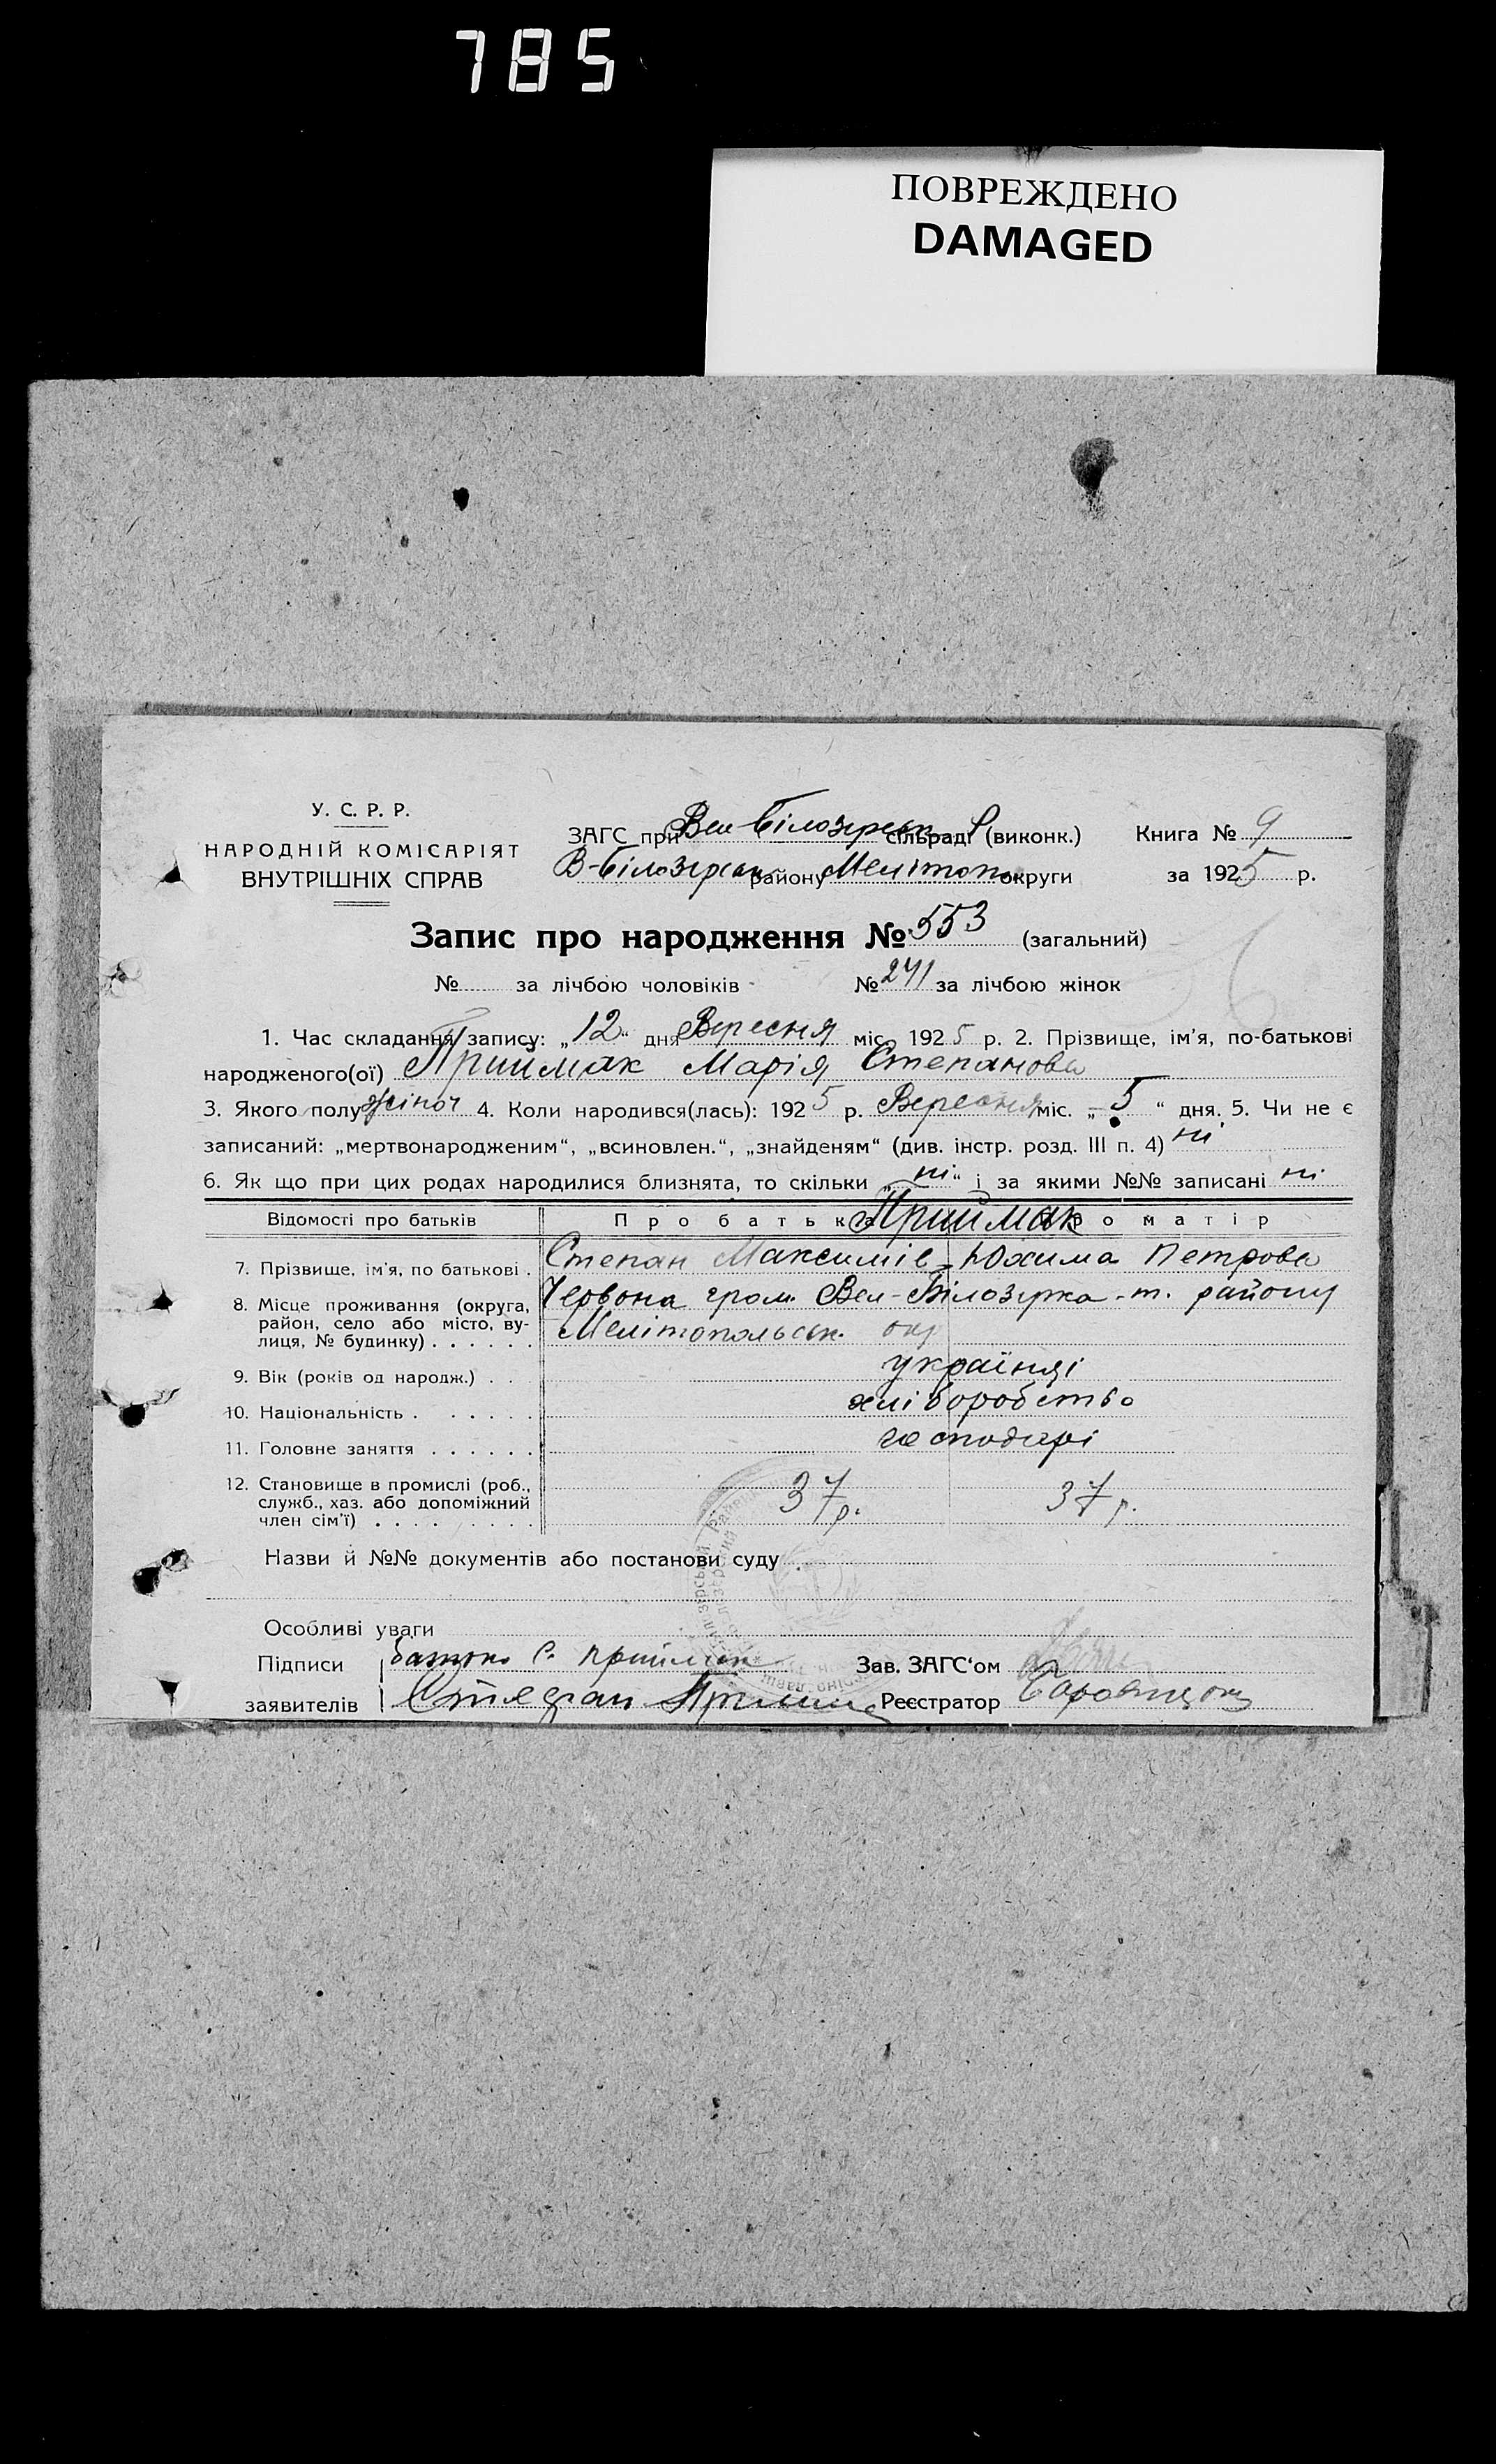 785
ПОВРЕЖДЕНО
DAMAGED
У. С. Р. Р.
НАРОДНІЙ КОМІСАРІЯТ
ВНУТРІШНІХ СПРАВ
ЗАГС при Вел Білозерськ сільраді (виконк.)
В-Білозерськ району Мелітоп округи
Книга № 9
за 1925 р.
Запис про народження № 553 (загальний)
№ за лічбою чоловіків № 241 за лічбою жінок
1. Час складання запису: „12“ дня Вересня міс. 1925 р. 2. Прізвище, ім'я, по-батькові
народженого(ої) Приймак Марія Степанова
3. Якого полу жіноч 4. Коли народився(лась): 1925 р. Вересня міс. „5“ дня. 5. Чи не є
записаний: „мертвонародженим“, „всиновлен.“, „знайденям“ (див. інстр. розд. III п. 4) ні
6. Як що при цих родах народилися близнята, то скільки „ні“ і за якими №№ записані ні
Відомості про батьків Про батька Приймак Про матір
7. Прізвище, ім'я, по батькові . Степан Максимів Юхима Петрова
8. Місце проживання (округа, Червона гром. Вел-Білозірка-т. району
район, село або місто, ву- Мелітопольськ. окр
лиця, № будинку) . . . . . .
9. Вік (років од народж.) . . українці
10. Національність . . . . . . хліборобство
11. Головне заняття . . . . . . господарі
12. Становище в промислі (роб., 37 р. 37 р.
служб., хаз. або допоміжний
член сім'ї) . . . . . . . .
Назви й №№ документів або постанови суду
Особливі уваги
Підписи батько С. Приймак Зав. ЗАГС‘ом
заявителів Реєстратор